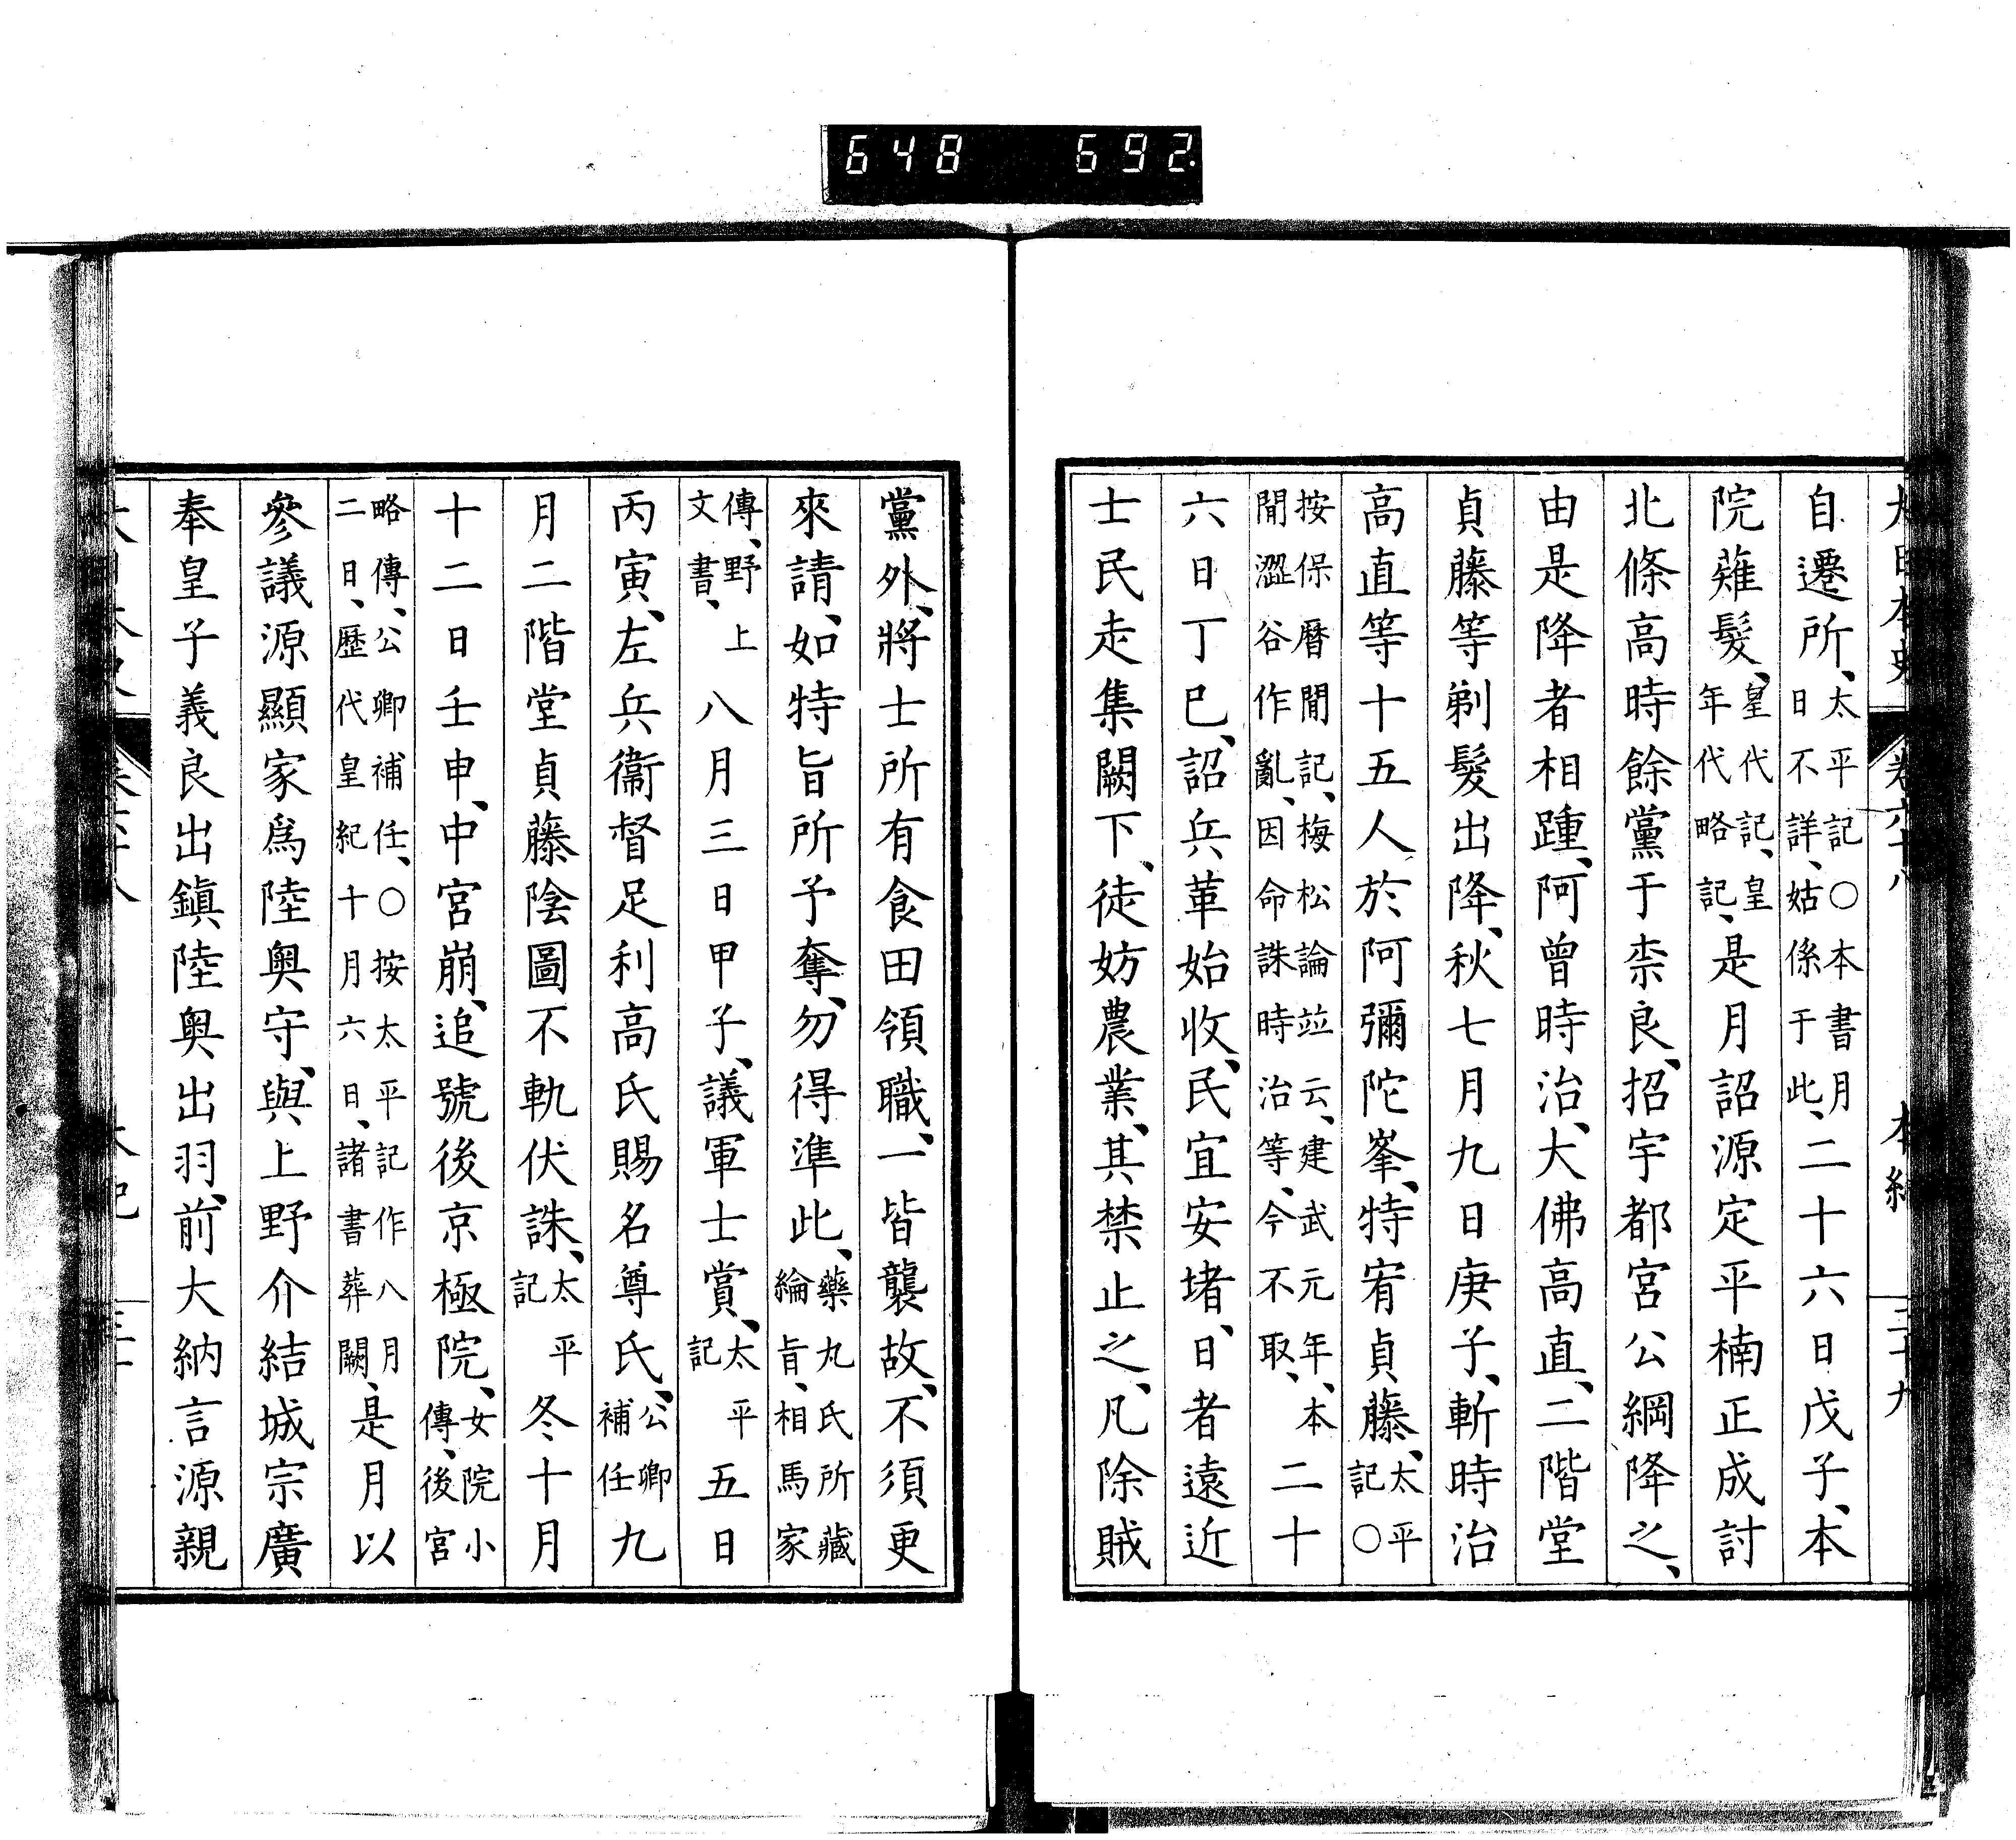 648 692
大日本史 卷六十八 本紀 三十九
自遷所、太平記○本書月日不詳、姑係于此、二十六日戊子、本
院薙髮、皇代記、皇年代略記、是月詔源定平楠正成討
北條高時餘黨于柰良、招宇都宮公綱降之、
由是降者相踵、阿曾時治、大佛高直、二階堂
貞藤等剃髮出降、秋七月九日庚子、斬時治
高直等十五人於阿彌陀峯、特宥貞藤、太平記○
按保曆閒記、梅松論並云、建武元年、本閒澀谷作亂、因命誅時治等、今不取、二十
六日丁巳、詔兵革始收、民宜安堵、日者遠近
士民走集闕下、徒妨農業、其禁止之、凡除賊
黨外、將士所有食田領職、一皆襲故、不須更
來請、如特旨所予奪、勿得準此、藥丸氏所藏綸旨、相馬家
傳、野上文書、八月三日甲子、議軍士賞、太平記五日
丙寅、左兵衞督足利高氏賜名尊氏、公卿補任九
月二階堂貞藤陰圖不軌伏誅、太平記冬十月
十二日壬申、中宮崩、追號後京極院、女院小傳、後宮
略傳、公卿補任、○按太平記作八月二日、歷代皇紀十月六日、諸書葬闕、是月以
參議源顯家爲陸奧守、與上野介結城宗廣
奉皇子義良出鎭陸奧出羽、前大納言源親